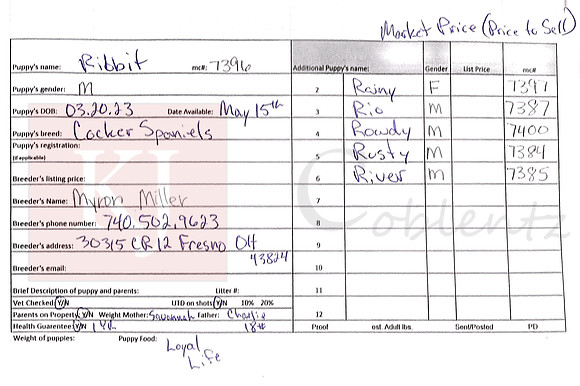 Market Price (Price to Sell)
Puppy's name: Ribbit mc#: 7396 Additional Puppy's name: Gender List Price mc#
Puppy's gender: M 2 Rainy F 7391
Puppy's DOB: 03.20.23 Date Available: May 15th 3 Rio M 7387
Puppy's breed: Cocker Spaniels 4 Rowdy M 7400
Puppy's registration:
(if applicable) 5 Rusty M 7384
Breeder's listing price: 6 River M 7385
Breeder's Name: Myron Miller 7
Breeder's phone number: 740.502.9623 8
Breeder's address: 30315 CR 12 Fresno OH 9
43824
Breeder's email: 10
KJ Coblentz
Brief Description of puppy and parents: Litter #: 11
Vet Checked Y/N UTD on shots Y/N 10% 20%
Parents on Property Y/N Weight Mother: Savannah Father: Charlie 12
Health Guarentee Y/N 1 yr 18# Proof est. Adult lbs. Sent/Posted PD
Weight of puppies: Puppy Food: Loyal
Life